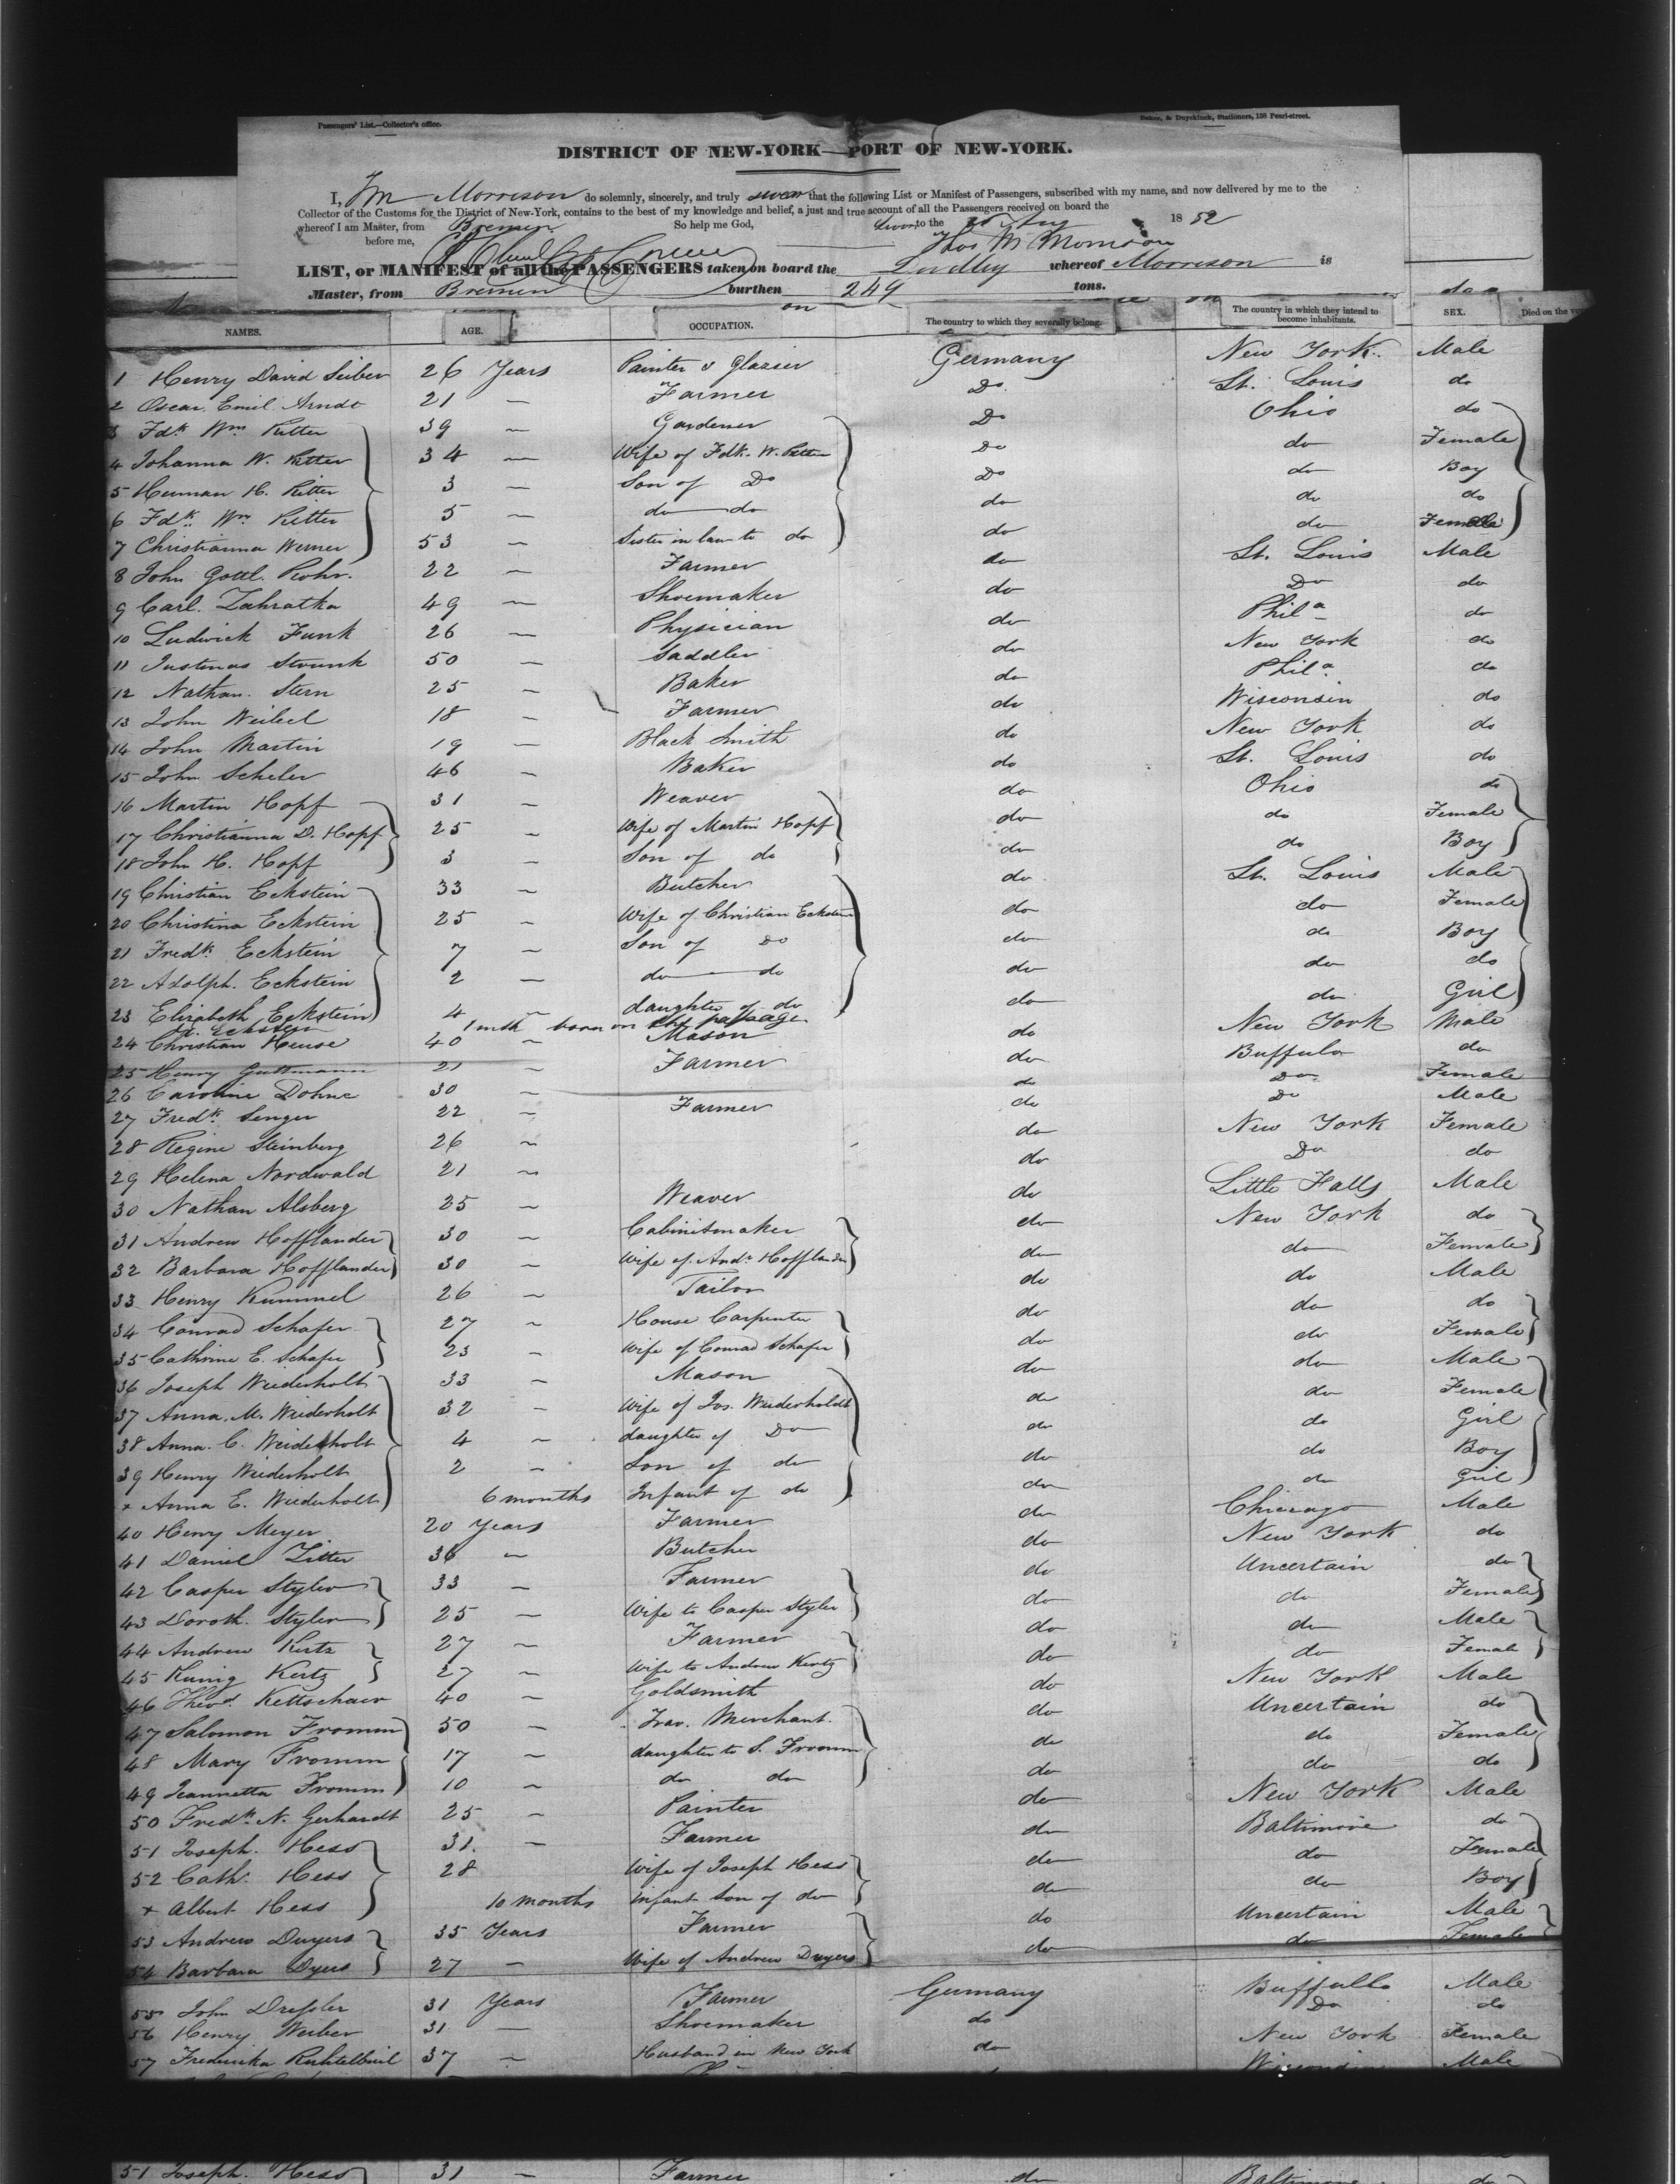 Passengers' List.—Collector's office.
Baker, & Duyckinck, Stationers, 158 Pearl-street.
DISTRICT OF NEW-YORK—PORT OF NEW-YORK.
I, Morrison do solemnly, sincerely, and truly swear that the following List or Manifest of Passengers, subscribed with my name, and now delivered by me to the
Collector of the Customs for the District of New-York, contains to the best of my knowledge and belief, a just and true account of all the Passengers received on board the
whereof I am Master, from Bremen So help me God,
Sworn to the 25 Aug 1852
before me, Thos M Morrison
LIST, or MANIFEST of all the PASSENGERS taken on board the whereof Morrison is
Master, from Bremen burthen 249 tons.
NAMES. AGE. OCCUPATION. The country to which they severally belong. The country in which they intend to become inhabitants. SEX. Died on the
1 Henry David Seiber 26 Years Painter & Glazier Germany New York Male
2 Oscar Emil Arndt 21 — Farmer Do St. Louis do
3 Fdk Wm Ritter 39 — Gardener Do Ohio do
4 Johanna W. Ritter 34 — Wife of Fdk. W. Ritter Do do Female
5 Herman H. Ritter 3 — Son of Do Do do Boy
6 Fdk Wm Ritter 5 — do do do do do
7 Christianna Werner 53 — Sister in law to do do do Female
8 John Gottl. Rohr. 22 — Farmer do St. Louis Male
9 Carl. Zahratka 49 — Shoemaker do Do do
10 Ludwick Funk 26 — Physician do Phila do
11 Justinas Strunk 50 — Saddler do New York do
12 Nathan Stern 25 — Baker do Phila do
13 John Weibel 18 — Farmer do Wisconsin do
14 John Martin 19 — Black Smith do New York do
15 John Scheler 46 — Baker do St. Louis do
16 Martin Hopf 31 — Weaver do Ohio do
17 Christianna D. Hopf 25 — Wife of Martin Hopf do do Female
18 John H. Hopf 3 — Son of do do do Boy
19 Christian Eckstein 33 — Butcher do St. Louis Male
20 Christina Eckstein 25 — Wife of Christian Eckstein do do Female
21 Fredk Eckstein 7 — Son of Do do do Boy
22 Adolph. Eckstein 2 — do do do do do
23 Elizabeth Eckstein 4 — daughter of do do do Girl
Eckstein 1 mth born on the passage
24 Christian Heuse 40 — Mason do New York Male
25 Henry Guttmann 21 — Farmer do Buffalo do
26 Caroline Dohne 30 — do Do Female
27 Fredk Senger 22 — Farmer do Do Male
28 Regine Steinberg 26 — do New York Female
29 Helena Nordwald 21 — do Do do
30 Nathan Alsberg 25 — Weaver do Little Falls Male
31 Andrew Hofflander 30 — Cabinitmaker do New York do
32 Barbara Hofflander 30 — Wife of Andw Hofflander do do Female
33 Henry Kummel 26 — Tailor do do Male
34 Conrad Schafer 27 — House Carpenter do do do
35 Cathrine E. Schafer 23 — Wife of Conrad Schafer do do Female
36 Joseph Wiederholt 33 — Mason do do Male
37 Anna M. Wiederholt 32 — Wife of Jos. Wiederholdt do do Female
38 Anna C. Weiderholt 4 — daughter of Do do do Girl
39 Henry Wiederholt 2 — Son of do do do Boy
x Anna E. Wiederholt 6 months Infant of do do do Girl
40 Henry Meyer 20 Years Farmer do Chicago Male
41 Daniel Zitter 36 — Butcher do New York do
42 Casper Styler 33 — Farmer do Uncertain do
43 Doroth. Styler 25 — Wife to Casper Styler do do Female
44 Andrew Kertz 27 — Farmer do do Male
45 Kunig Kertz 27 — Wife to Andrew Kertz do do Female
46 Theod. Kettschair 40 — Goldsmith do New York Male
47 Salomon Fromm 50 — Trav. Merchant. do Uncertain do
48 Mary Fromm 17 — daughter to S. Fromm do do Female
49 Jeannetta Fromm 10 — do do do do do
50 Fredk N. Gerhardt 25 — Painter do New York Male
51 Joseph. Hess 31. — Farmer do Baltimore do
52 Cath. Hess 28 Wife of Joseph Hess do do Female
x Albert Hess 10 months Infant Son of do do do Boy
53 Andrew Duyers 35 Years Farmer do Uncertain Male
54 Barbara Dyers 27 — Wife of Andrew Duyers do do Female
55 John Dressler 31 Years Farmer Germany Buffallo Male
56 Henry Weiber 31 — Shoemaker do Do do
57 Frederika 37 — Husband in New York do New York Female
Wisconsin Male
51 Joseph. Hess 31 — Farmer do Baltimore do